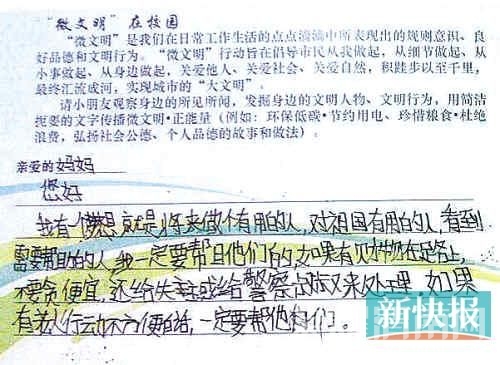 “微文明”在校园
“微文明”是我们在日常工作生活的点点滴滴中所表现出的规则意识、良
好品德和文明行为。“微文明”行动旨在倡导市民从我做起、从细节做起、从
小事做起、从身边做起，关爱他人、关爱社会、关爱自然，积跬步以至千里，
最终汇流成河，实现城市的“大文明”。
请小朋友观察身边的所见所闻，发掘身边的文明人物、文明行为，用简洁
扼要的文字传播微文明·正能量（例如：环保低碳·节约用电、珍惜粮食·杜绝
浪费，弘扬社会公德、个人品德的故事和做法）。
亲爱的妈妈
您好
我有个梦想就是将来做个有用的人，对祖国有用的人，看到
需要帮助的人，我一定要帮助他们的，如果有财物在路上，
不要贪便宜，还给失主或给警察叔叔来处理，如果
有老人行动不方便的话，一定要帮他们。
新快报